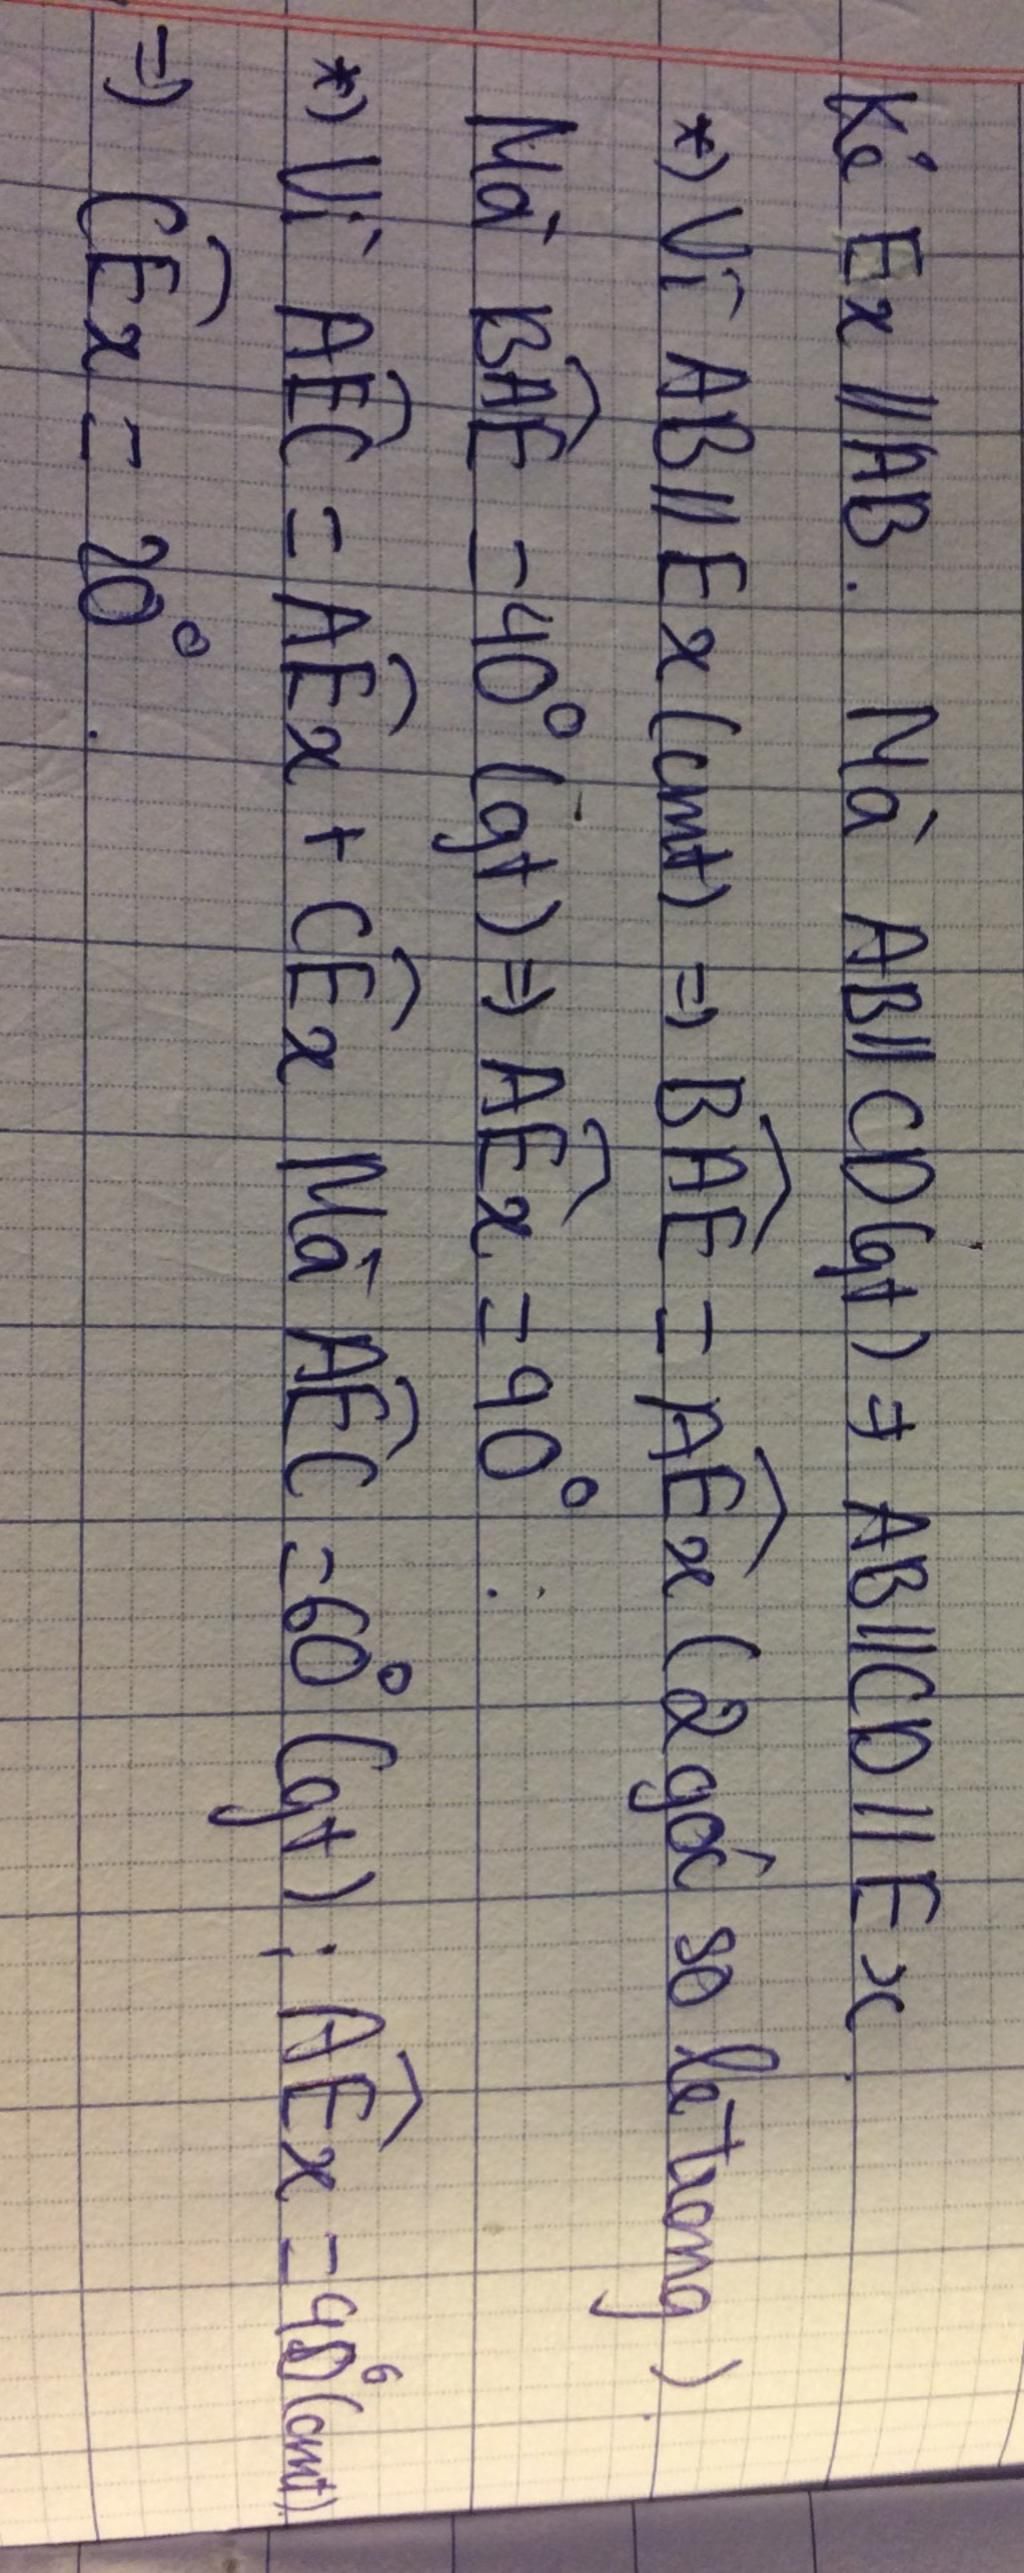 Kẻ Ex // AB. Mà AB // CD (gt) ⇒ AB // CD // Ex.
*) Vì AB // Ex (cmt) ⇒ \widehat{BAE} = \widehat{AEx} (2 góc so le trong).
Mà \widehat{BAE} = 40° (gt) ⇒ \widehat{AEx} = 40°.
*) Vì \widehat{AEC} = \widehat{AEx} + \widehat{CEx} Mà \widehat{AEC} = 60° (gt); \widehat{AEx} = 40° (cmt)
⇒ \widehat{CEx} = 20°.